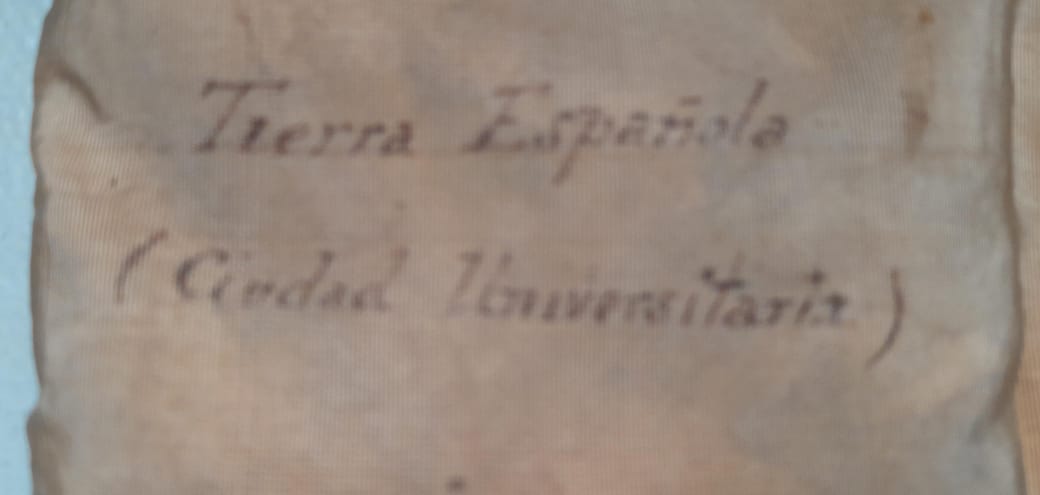 Tierra Española
(Ciudad Universitaria)